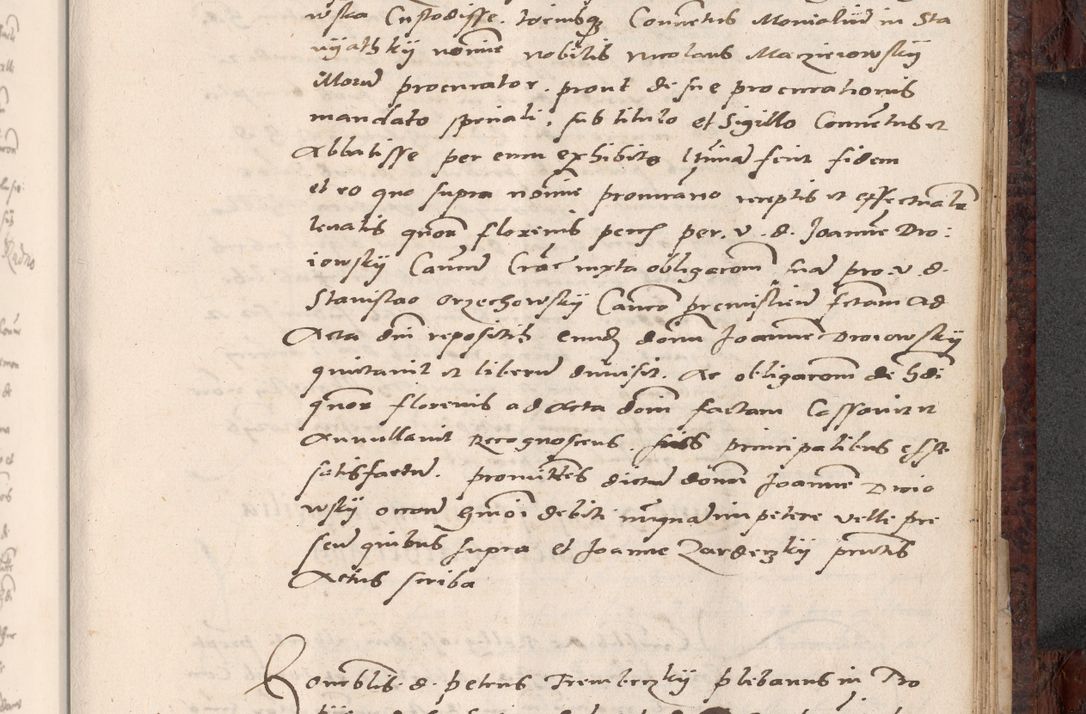 wska Custodisse. totiusq Conventus Monialium in Sta
nyathkÿ nomine nobilis Nicolaus Maczieiowskÿ
illorum procurator. prout de sue procurationis
mandato speciali, sub titulo et Sigillo Conventus et
Abbatisse per eum exhibito fecit fidem
et eo quo supra nomine procurario receptis et effectualr
levatis quor florenis per v. d. Joannem Dro:
iowskÿ Canm Crac iuxta obligacom suam pro v. d.
Stanislao orzechowskÿ Canco premislien factam ad
Acta dni repositis eund donm Joannem Droiowskÿ
quitavit et liberum dimisit. Ac obligacom de hdi
quor florenis ad Acta donm factam Cassavit et
Annullavit Recognoscens suis principalibus esse
satisfactum. promittens dictum donm Joannem Droio
wskÿ occone hmoi debiti nunquam impetere velle pre
sen quibus supra et Joanne Zardeczkÿ pntis
Actus scriba
Honorablis. d. petrus Trembeczkÿ plebanus in Bo